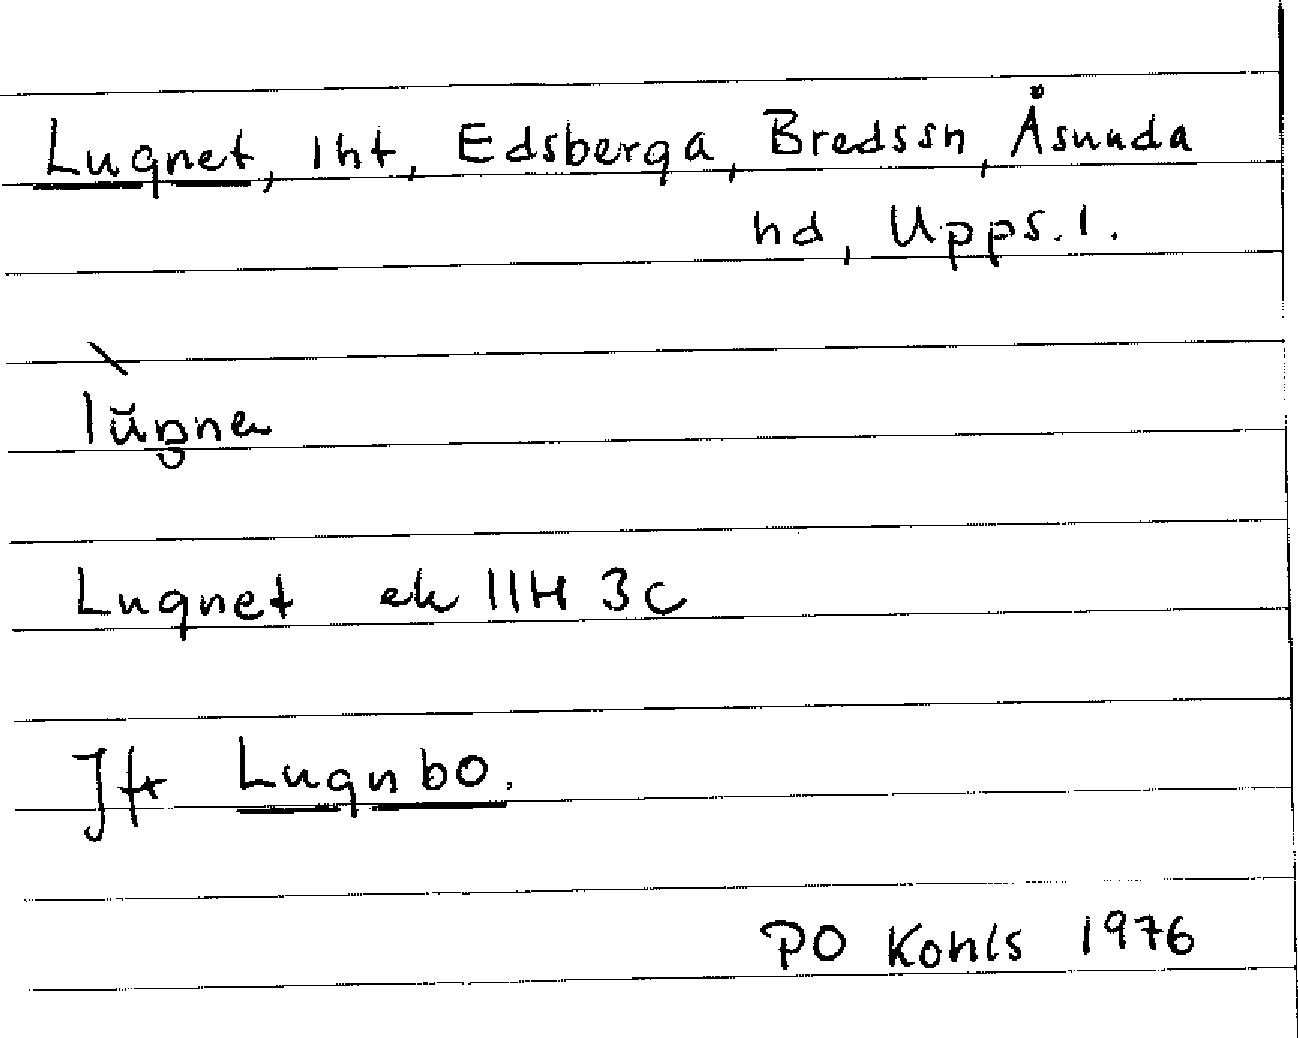 Lugnet, lht, Edsberga, Bredssn, Åsunda
hd, Upps. l.
Lugnet ek 11H 3c
Jfr Lugnbo.
PO Kohls 1976